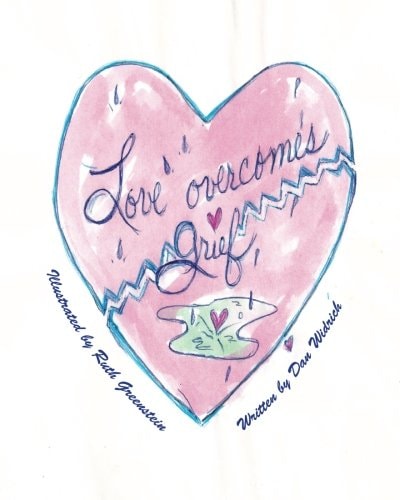 Love overcomes
Grief,
Illustrated by Ruth Greenstein
Written by Dan Widrich